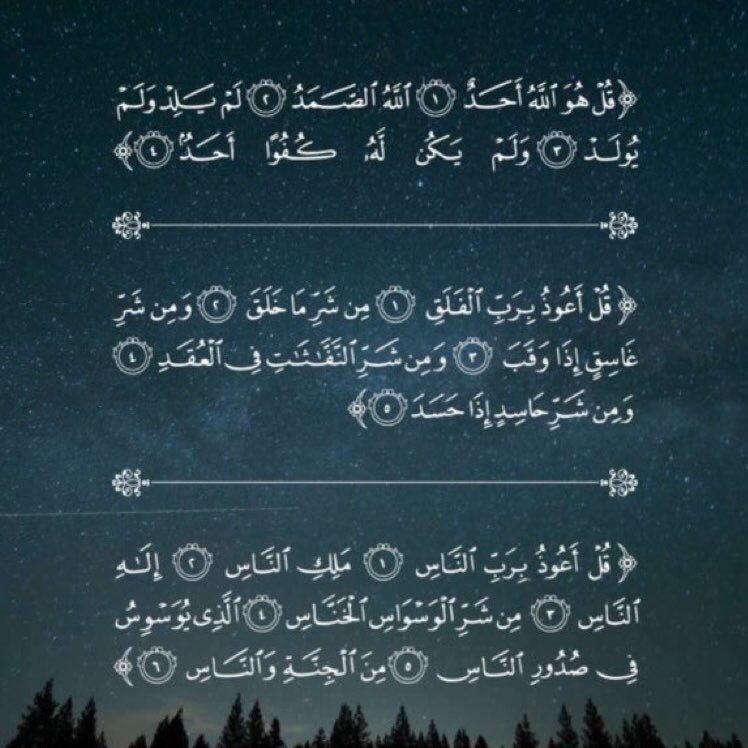 ﴿قُلْ هُوَ ٱللَّهُ أَحَدٌ ١ ٱللَّهُ ٱلصَّمَدُ ٢ لَمْ يَلِدْ وَلَمْ
يُولَدْ ٣ وَلَمْ يَكُن لَّهُۥ كُفُوًا أَحَدُۢ ٤﴾
﴿قُلْ أَعُوذُ بِرَبِّ ٱلْفَلَقِ ١ مِن شَرِّ مَا خَلَقَ ٢ وَمِن شَرِّ
غَاسِقٍ إِذَا وَقَبَ ٣ وَمِن شَرِّ ٱلنَّفَّـٰثَـٰتِ فِى ٱلْعُقَدِ ٤
وَمِن شَرِّ حَاسِدٍ إِذَا حَسَدَ ٥﴾
﴿قُلْ أَعُوذُ بِرَبِّ ٱلنَّاسِ ١ مَلِكِ ٱلنَّاسِ ٢ إِلَـٰهِ
ٱلنَّاسِ ٣ مِن شَرِّ ٱلْوَسْوَاسِ ٱلْخَنَّاسِ ٤ ٱلَّذِى يُوَسْوِسُ
فِى صُدُورِ ٱلنَّاسِ ٥ مِنَ ٱلْجِنَّةِ وَٱلنَّاسِ ٦﴾